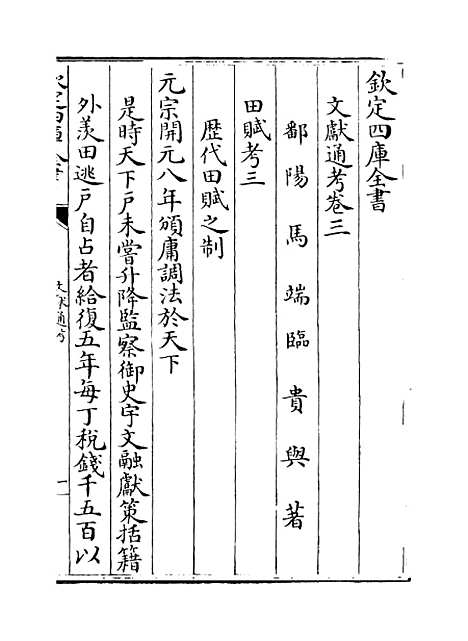 欽定四庫全書
文獻通考卷三
鄱陽馬端臨貴與著
田賦考三
歴代田賦之制
元宗開元八年頒庸調法於天下
是時天下戸未嘗升降監察御史宇文融獻策括籍
外羡田逃戸自占者給復五年每丁稅錢千五百以
欽定四庫全書
文獻通考
一